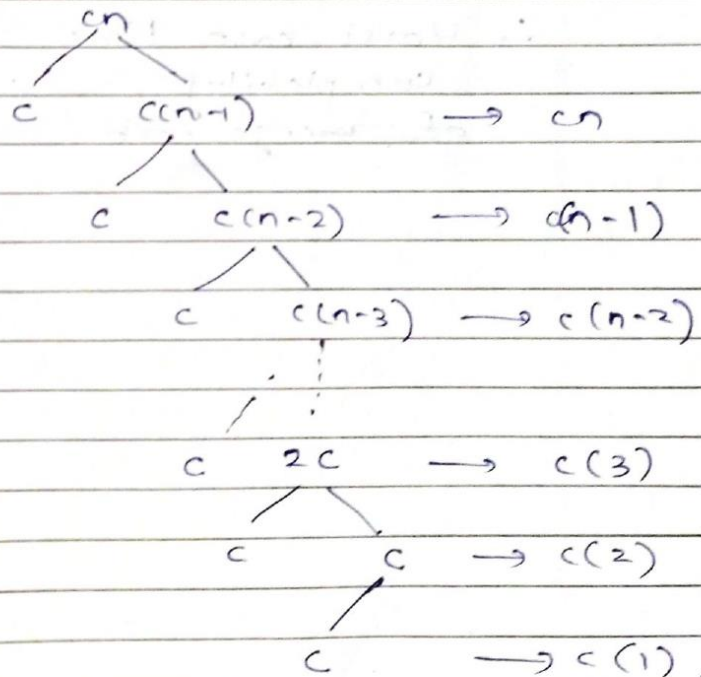 cn
c c(n-1) → cn
c c(n-2) → c(n-1)
c c(n-3) → c(n-2)
c 2c → c(3)
c c → c(2)
c → c(1)